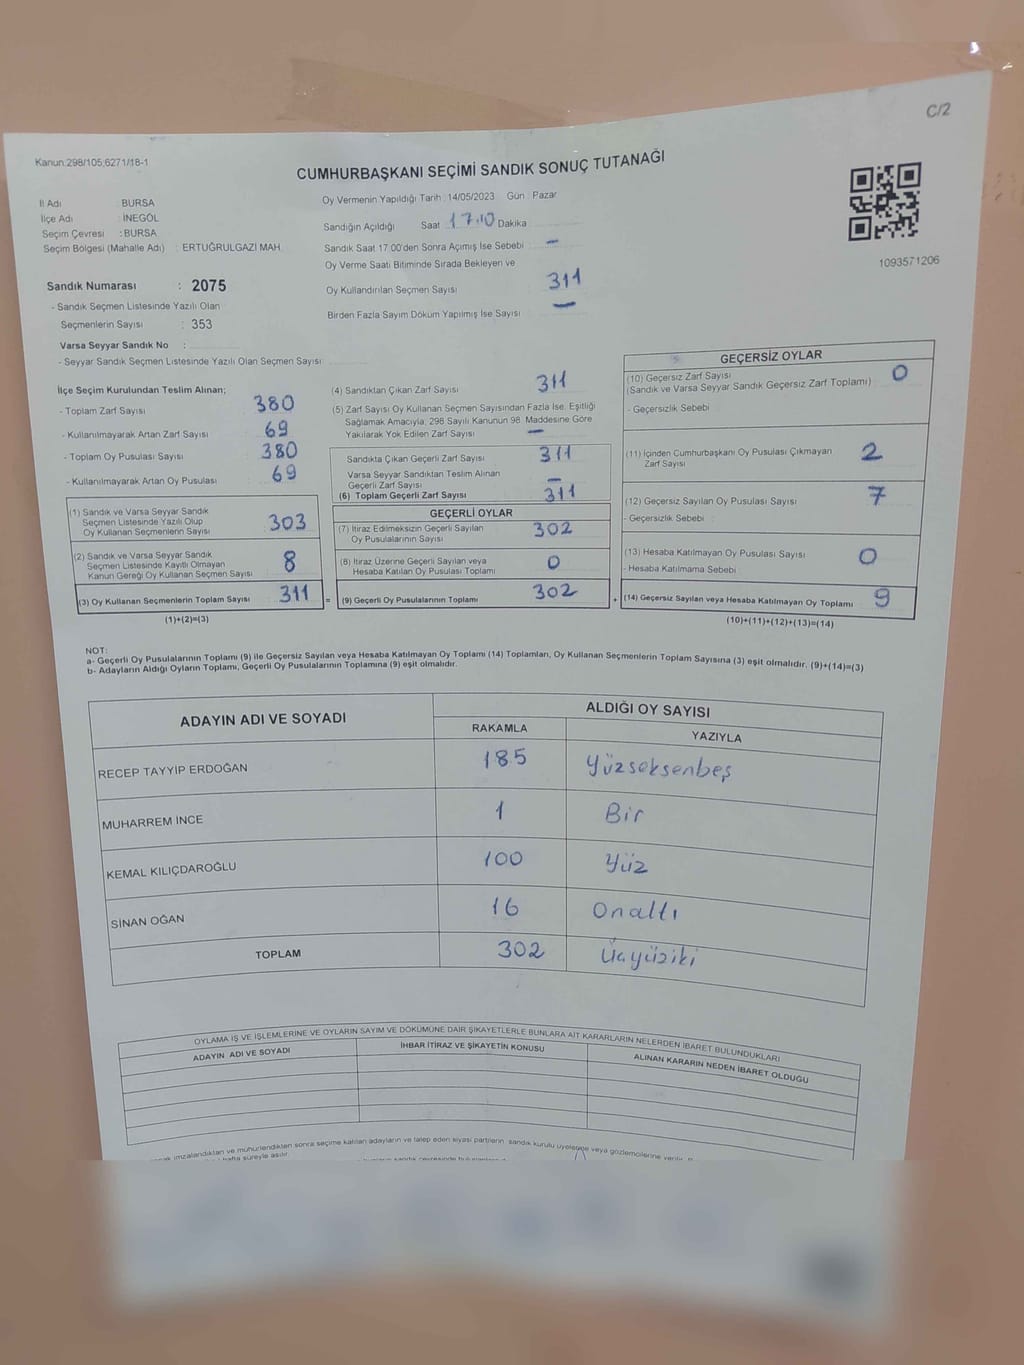 C/2
Kanun:298/105;6271/18-1
CUMHURBAŞKANI SEÇİMİ SANDIK SONUÇ TUTANAĞI
İl Adı : BURSA
İlçe Adı : İNEGÖL
Seçim Çevresi : BURSA
Seçim Bölgesi (Mahalle Adı) : ERTUĞRULGAZİ MAH.
Oy Vermenin Yapıldığı Tarih : 14/05/2023 Gün : Pazar
Sandığın Açıldığı Saat 17:10 Dakika
Sandık Saat 17:00'den Sonra Açımış İse Sebebi —
Oy Verme Saati Bitiminde Sırada Bekleyen ve
Oy Kullandırılan Seçmen Sayısı 311
Birden Fazla Sayım Döküm Yapılmış İse Sayısı —
1093571206
Sandık Numarası : 2075
- Sandık Seçmen Listesinde Yazılı Olan
Seçmenlerin Sayısı : 353
Varsa Seyyar Sandık No :
- Seyyar Sandık Seçmen Listesinde Yazılı Olan Seçmen Sayısı:
İlçe Seçim Kurulundan Teslim Alınan;
- Toplam Zarf Sayısı 380
- Kullanılmayarak Artan Zarf Sayısı 69
- Toplam Oy Pusulası Sayısı 380
- Kullanılmayarak Artan Oy Pusulası 69
(1) Sandık ve Varsa Seyyar Sandık
Seçmen Listesinde Yazılı Olup
Oy Kullanan Seçmenlerin Sayısı 303
(2) Sandık ve Varsa Seyyar Sandık
Seçmen Listesinde Kayıtlı Olmayan
Kanun Gereği Oy Kullanan Seçmen Sayısı 8
(3) Oy Kullanan Seçmenlerin Toplam Sayısı 311
(1)+(2)=(3)
(4) Sandıktan Çıkan Zarf Sayısı 311
(5) Zarf Sayısı Oy Kullanan Seçmen Sayısından Fazla İse, Eşitliği
Sağlamak Amacıyla; 298 Sayılı Kanunun 98. Maddesine Göre
Yakılarak Yok Edilen Zarf Sayısı —
Sandıkta Çıkan Geçerli Zarf Sayısı 311
Varsa Seyyar Sandıktan Teslim Alınan
Geçerli Zarf Sayısı —
(6) Toplam Geçerli Zarf Sayısı 311
GEÇERLİ OYLAR
(7) İtiraz Edilmeksizin Geçerli Sayılan
Oy Pusulalarının Sayısı 302
(8) İtiraz Üzerine Geçerli Sayılan veya
Hesaba Katılan Oy Pusulası Toplamı 0
= (9) Geçerli Oy Pusulalarının Toplamı 302
GEÇERSİZ OYLAR
(10) Geçersiz Zarf Sayısı 0
(Sandık ve Varsa Seyyar Sandık Geçersiz Zarf Toplamı)
- Geçersizlik Sebebi
(11) İçinden Cumhurbaşkanı Oy Pusulası Çıkmayan
Zarf Sayısı 2
(12) Geçersiz Sayılan Oy Pusulası Sayısı 7
- Geçersizlik Sebebi :
(13) Hesaba Katılmayan Oy Pusulası Sayısı 0
- Hesaba Katılmama Sebebi :
+ (14) Geçersiz Sayılan veya Hesaba Katılmayan Oy Toplamı 9
(10)+(11)+(12)+(13)=(14)
NOT:
a- Geçerli Oy Pusulalarının Toplamı (9) ile Geçersiz Sayılan veya Hesaba Katılmayan Oy Toplamı (14) Toplamları, Oy Kullanan Seçmenlerin Toplam Sayısına (3) eşit olmalıdır. (9)+(14)=(3)
b- Adayların Aldığı Oyların Toplamı, Geçerli Oy Pusulalarının Toplamına (9) eşit olmalıdır.
ADAYIN ADI VE SOYADI ALDIĞI OY SAYISI
RAKAMLA YAZIYLA
RECEP TAYYİP ERDOĞAN 185 Yüzseksenbeş
MUHARREM İNCE 1 Bir
KEMAL KILIÇDAROĞLU 100 Yüz
SİNAN OĞAN 16 Onaltı
TOPLAM 302 Üçyüziki
OYLAMA İŞ VE İŞLEMLERİNE VE OYLARIN SAYIM VE DÖKÜMÜNE DAİR ŞİKAYETLERLE BUNLARA AİT KARARLARIN NELERDEN İBARET BULUNDUKLARI
ADAYIN ADI VE SOYADI İHBAR İTİRAZ VE ŞİKAYETİN KONUSU ALINAN KARARIN NEDEN İBARET OLDUĞU
imzalandıktan ve mühürlendikten sonra seçime katılan adayların ve talep eden siyasi partilerin sandık kurulu üyelerine veya gözlemcilerine verilir.
hafta süreyle asılır.